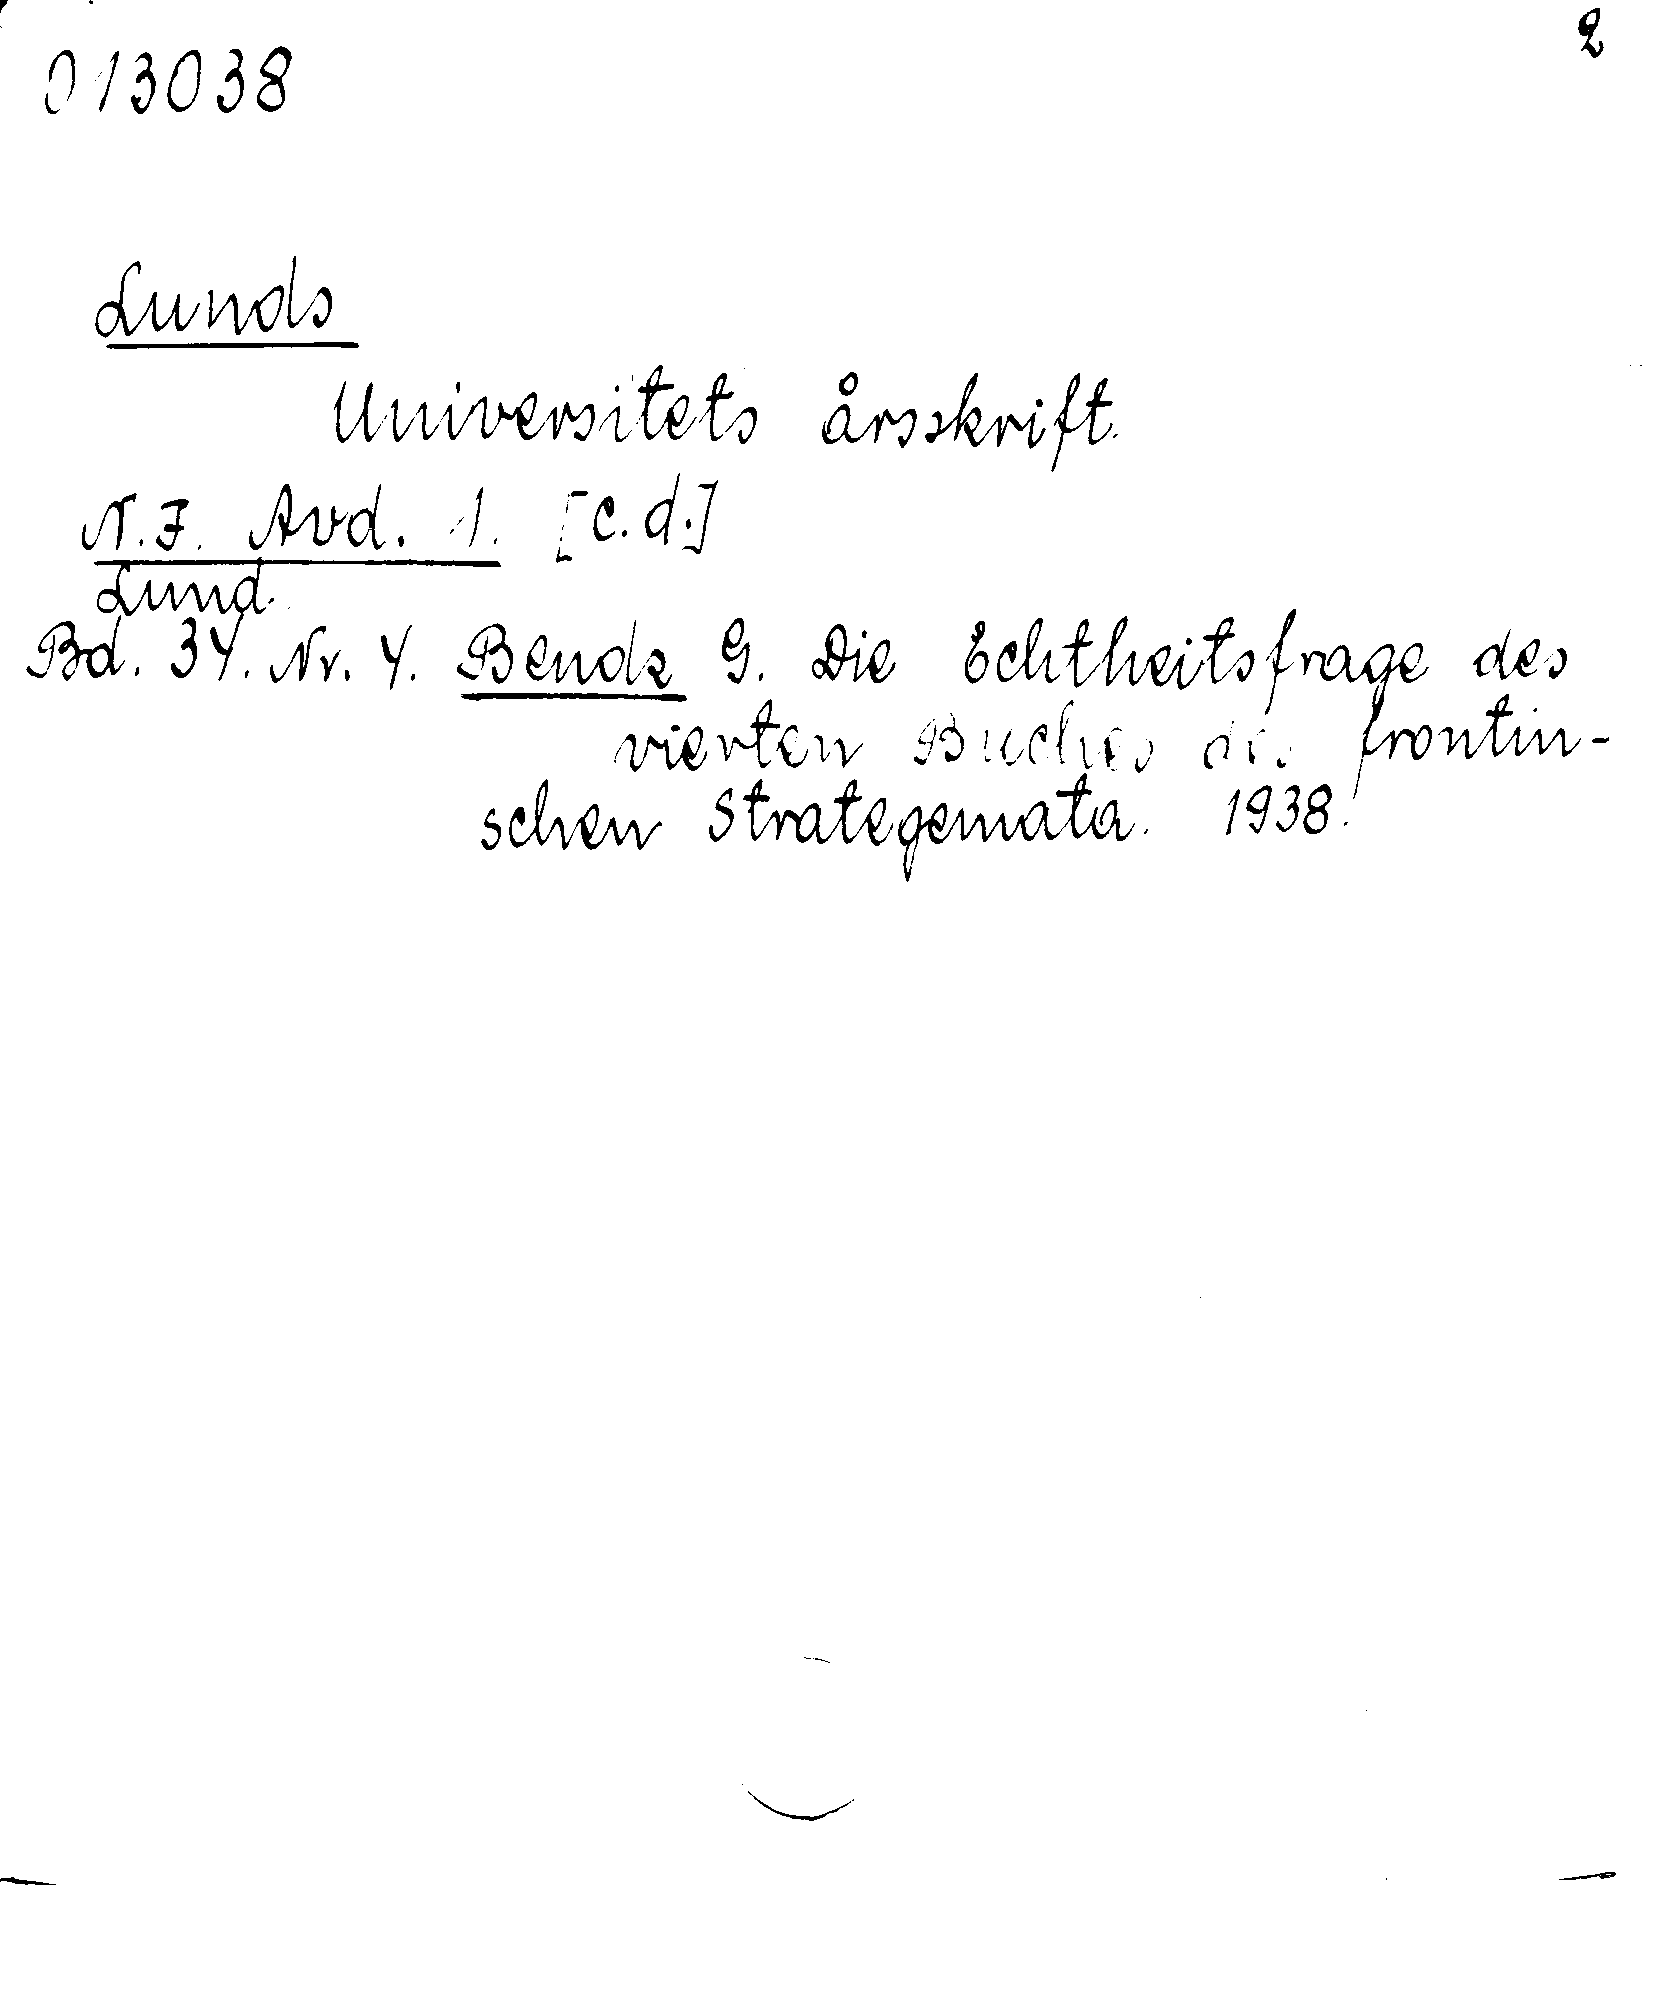 2
013038
Lunds
Universitets årsskrift.
N.F. Avd. 1. [c.d.]
Lund.
Bd. 34. Nr. 4. Bendz G. Die Echtheitsfrage des
vierten Buches der frontin-
schen Strategemata. 1938.